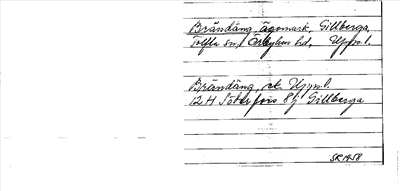 Brändäng, ägomark, Gillberga,
Tolfta sn, Örbyhus hd, Uppl.
Brändäng, ek Uppl.
12 H Söderfors 8g Gillberga
SK 1958